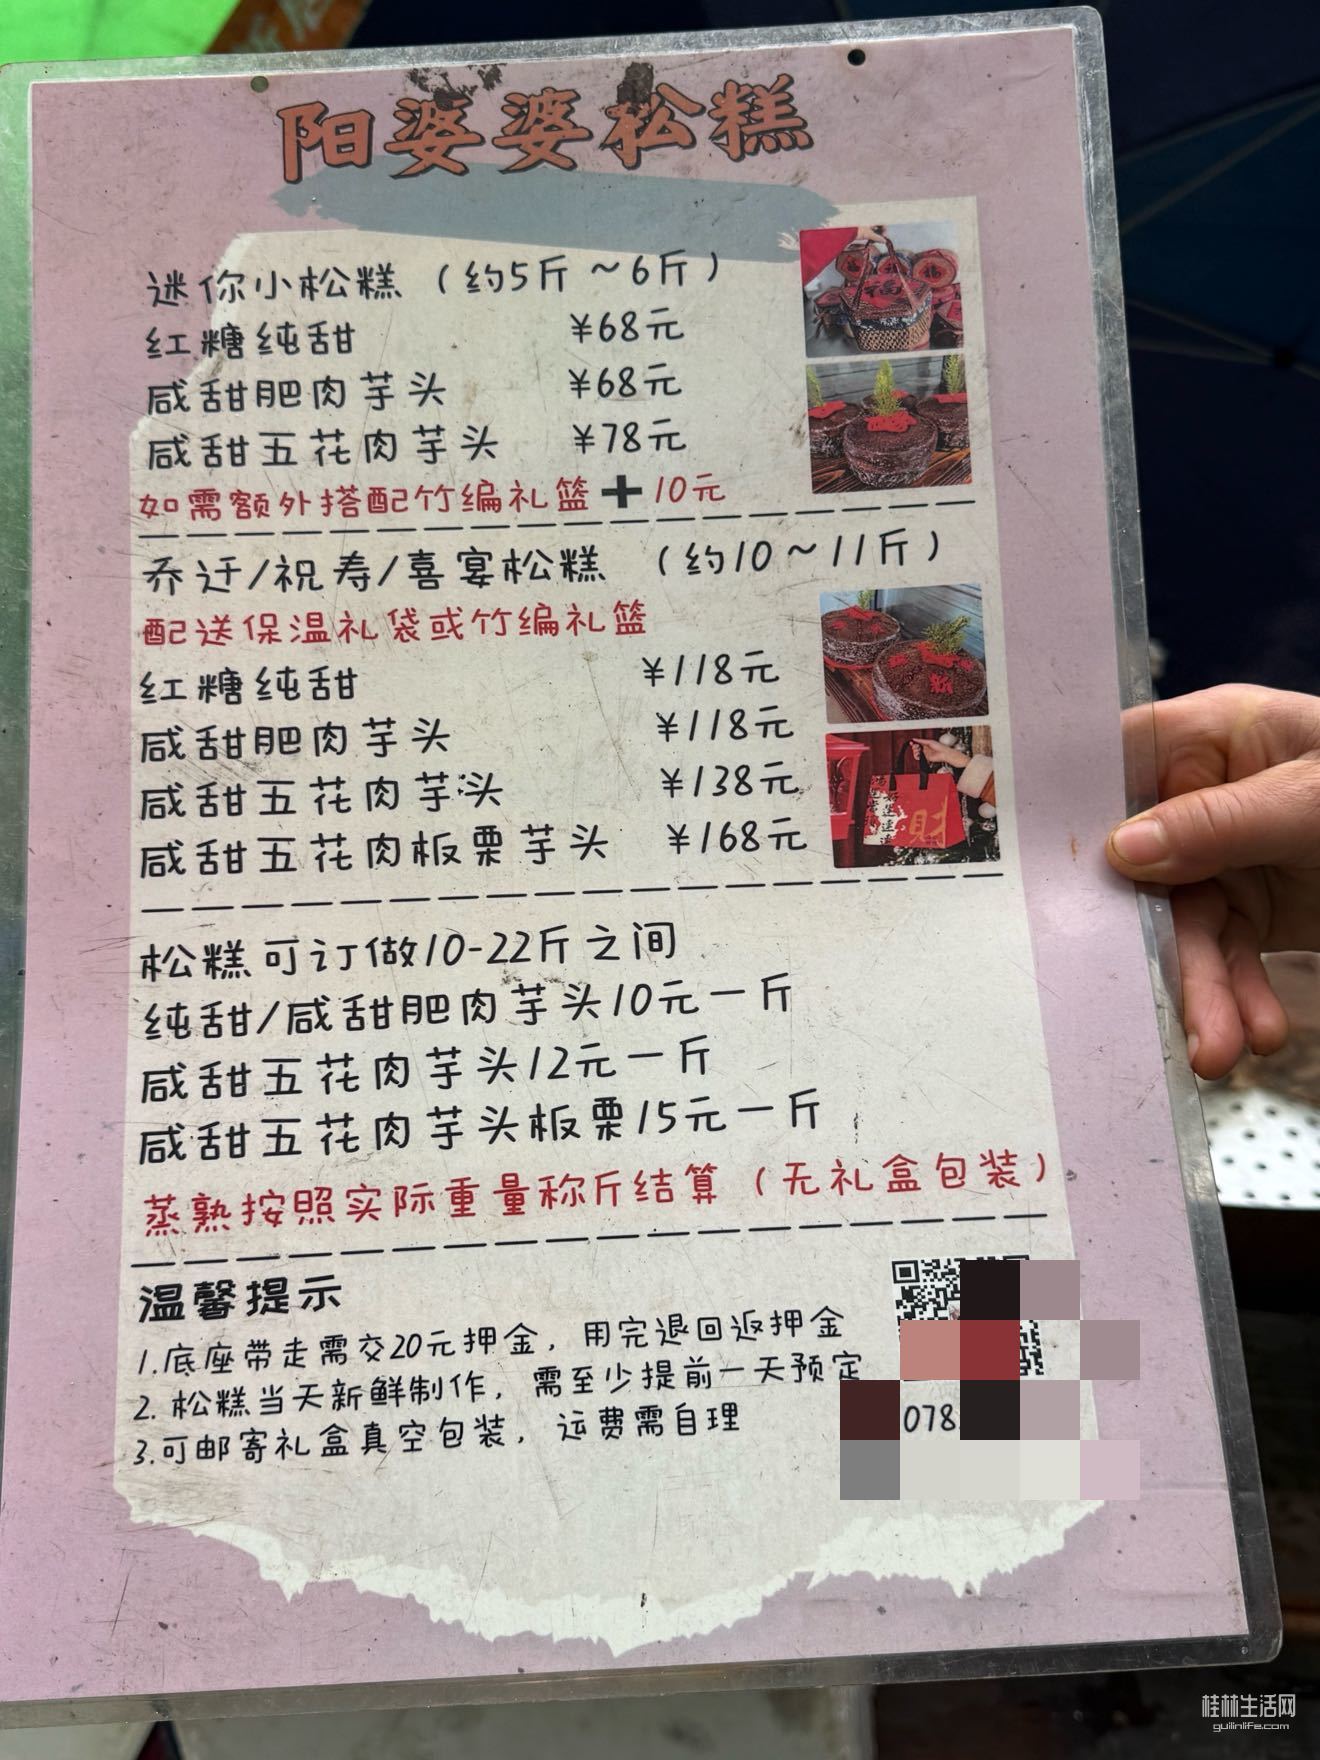 阳婆婆松糕
迷你小松糕（约5斤～6斤）
红糖纯甜 ¥68元
咸甜肥肉芋头 ¥68元
咸甜五花肉芋头 ¥78元
如需额外搭配竹编礼篮➕10元
乔迁/祝寿/喜宴松糕（约10～11斤）
配送保温礼袋或竹编礼篮
红糖纯甜 ¥118元
咸甜肥肉芋头 ¥118元
咸甜五花肉芋头 ¥138元
咸甜五花肉板栗芋头 ¥168元
财
松糕可订做10-22斤之间
纯甜/咸甜肥肉芋头10元一斤
咸甜五花肉芋头12元一斤
咸甜五花肉芋头板栗15元一斤
蒸熟按照实际重量称斤结算（无礼盒包装）
温馨提示
1.底座带走需交20元押金，用完退回返押金
2.松糕当天新鲜制作，需至少提前一天预定
3.可邮寄礼盒真空包装，运费需自理
078
桂林生活网
guilinlife.com